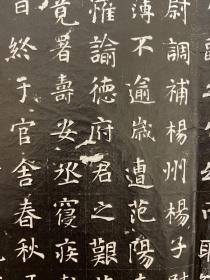 尉調補楊州楊子尉
薄不逾歲遭范陽
罹諭德府君之艱
竟署壽安丞寢疾
日終于官舍春秋